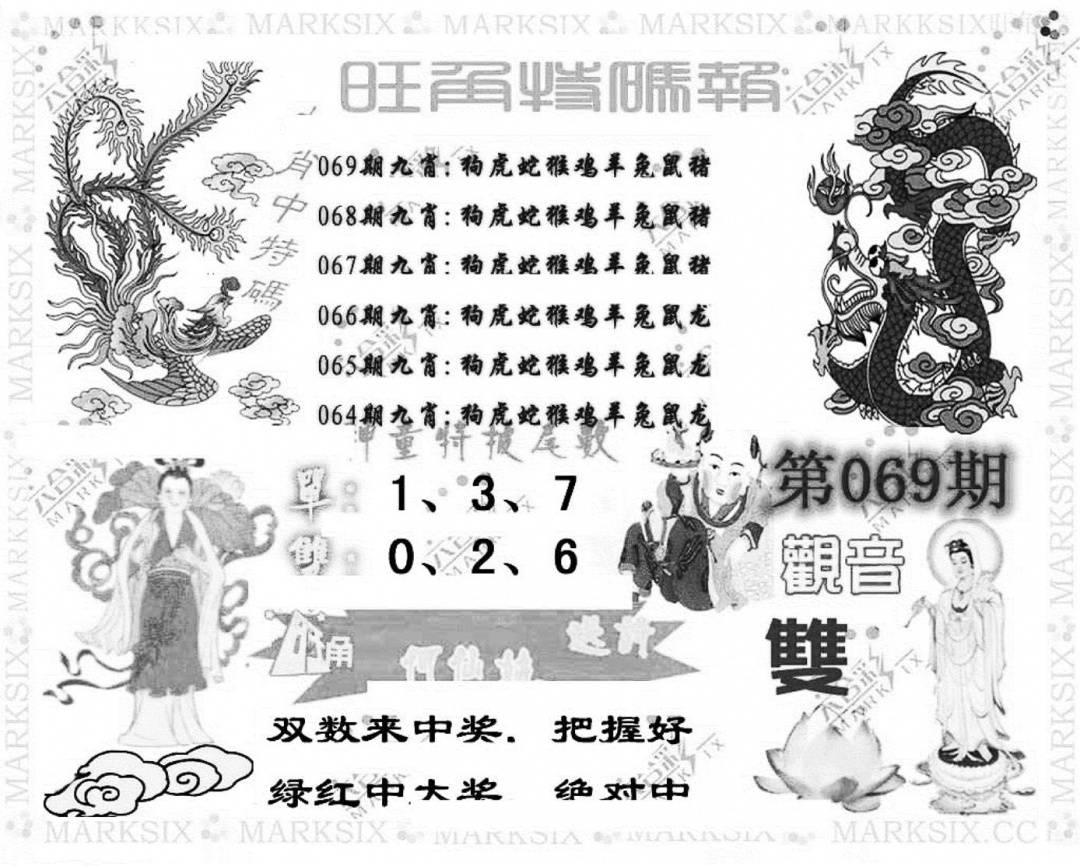 MARKKSIX MARKSIX MARKSIX MARKSIX MARKKSIX
旺角特碼報
肖中特碼
069期九肖:狗虎蛇猴鸡羊兔鼠猪
068期九肖:狗虎蛇猴鸡羊兔鼠猪
067期九肖:狗虎蛇猴鸡羊兔鼠猪
066期九肖:狗虎蛇猴鸡羊兔鼠龙
065期九肖:狗虎蛇猴鸡羊兔鼠龙
064期九肖:狗虎蛇猴鸡羊兔鼠龙
神童特报尾數
單: 1、3、7
雙: 0、2、6
第069期
觀音
雙
旺角
何仙姑
送前
双数来中奖. 把握好
绿红中大奖 绝对中
MARKSIX MARKSIX MARKSIX MARKSIX MARKSIX.CC